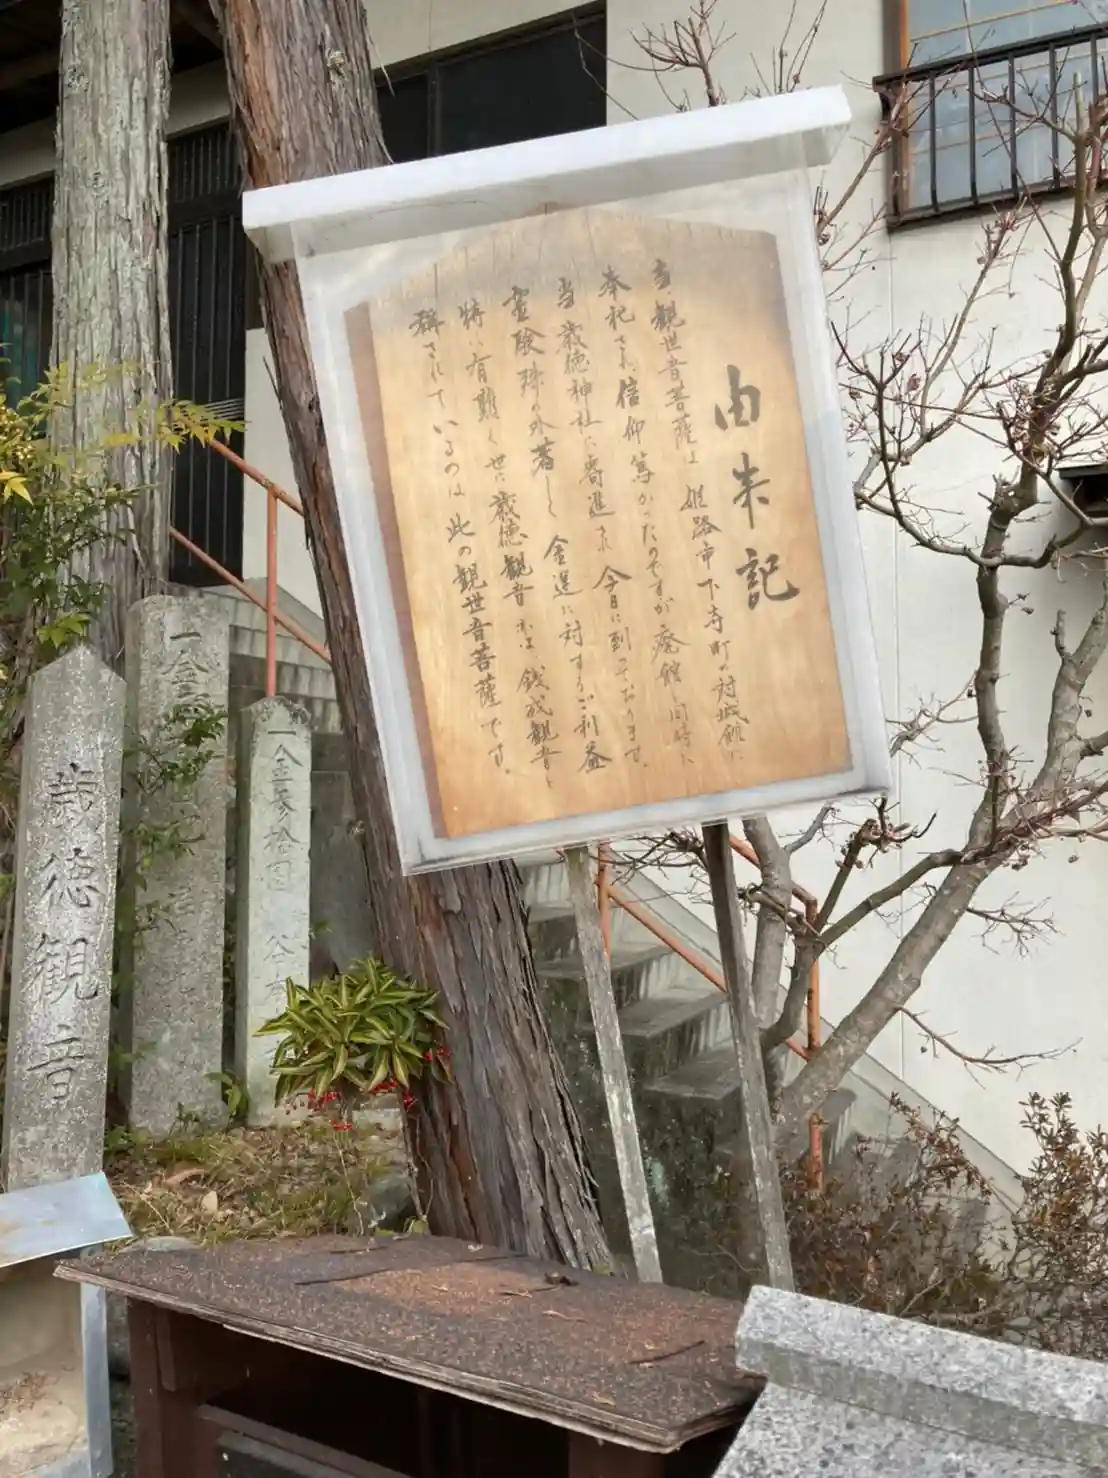 由来記
当観世音菩薩は 姫路市下寺町の対城館に
奉祀され信仰篤かったのですが廃館と同時に
当歳徳神社に寄進され今日に到っております。
霊険殊の外著しく 金運に対するご利益
特に有難く世に歳徳観音亦は銭成観音と
称されているのは此の観世音菩薩です。
一金
一金参拾円 谷
歳徳観音